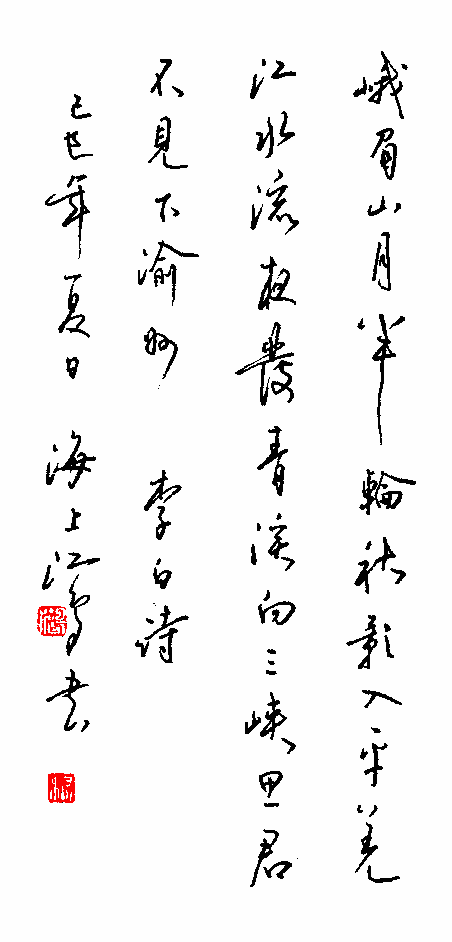 峨眉山月半輪秋影入平羌
江水流夜發青溪向三峽思君
不見下渝州 李白詩
己巳年夏日 海上江 书